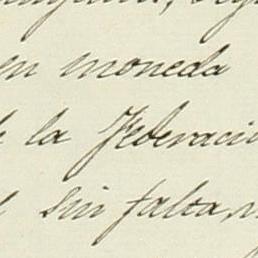 en moneda
la Federació
sin falta,